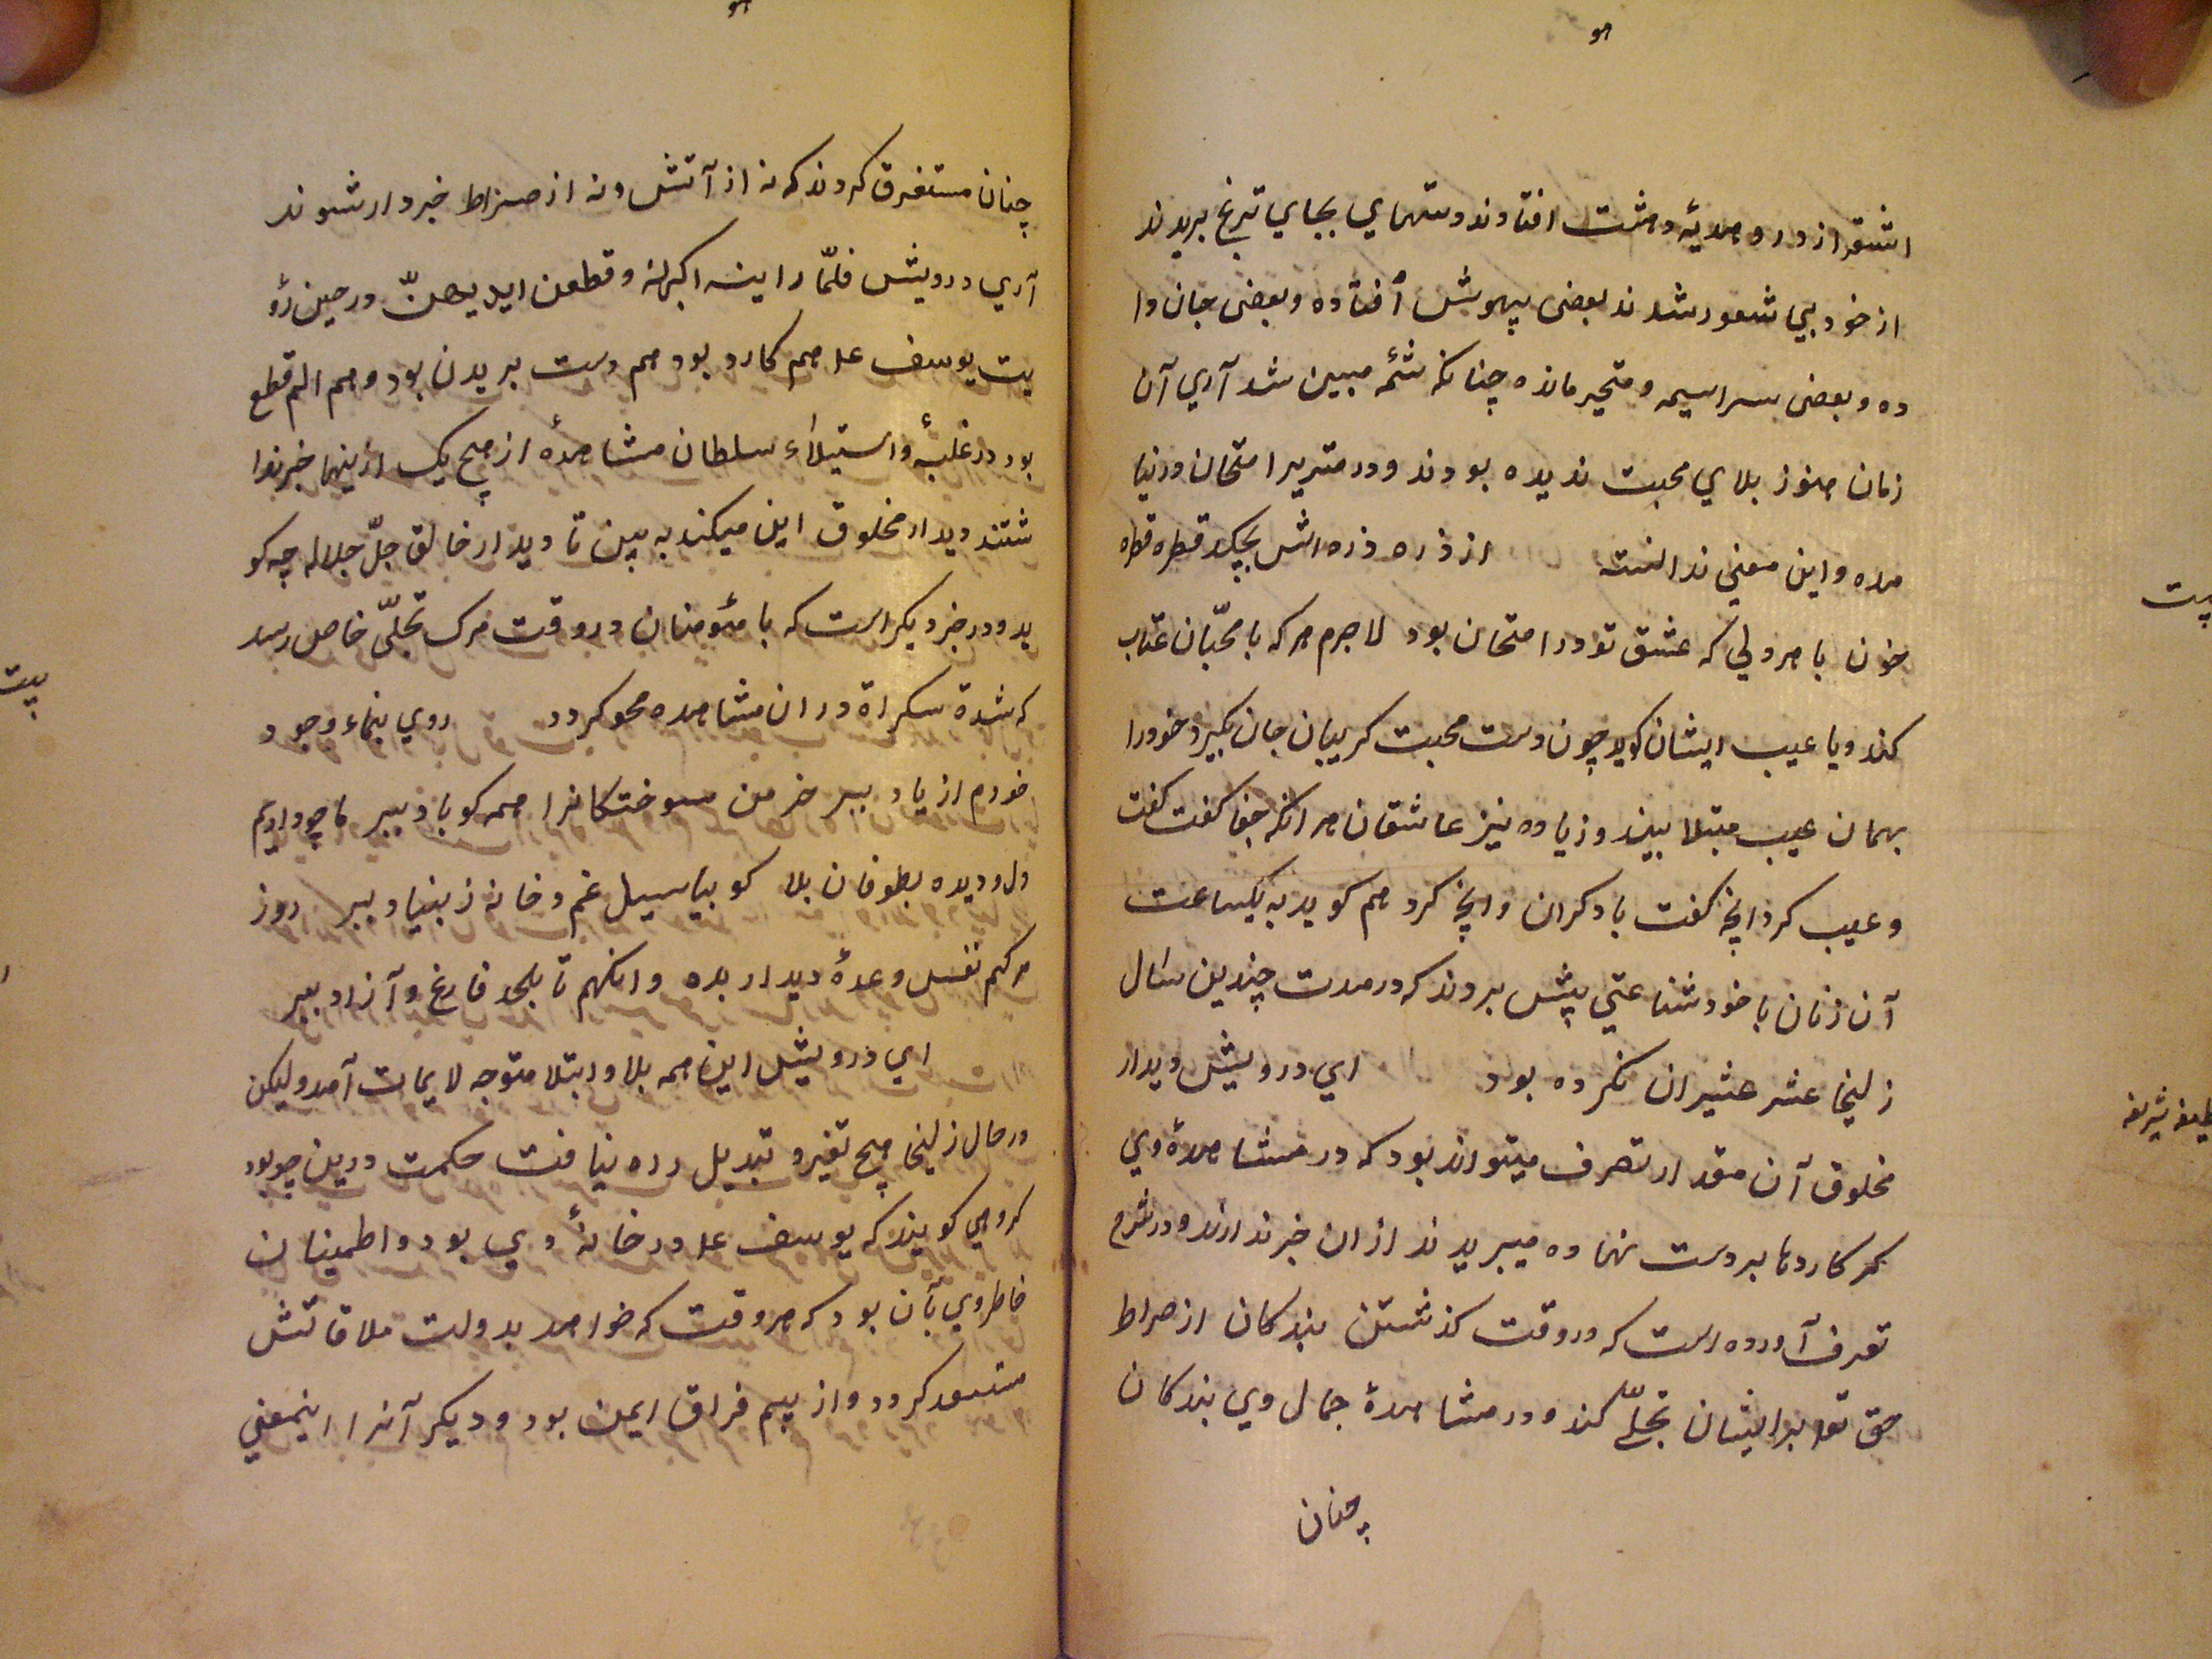 هو
از خود بي شعور شدند بعضی بيهوش افتاده وبعضی جان دا
ده وبعضی سراسيمه ومتحير مانده چنانکه شمّه مبين شد آري آن
زمان هنوز بلاي محبت نديده بودند ودر امتحان دنيا
مده واين معني ندانسته از ذره ذره اش بچکد قطره قطره
خون با هر دلي که عشق تو در امتحان بود لاجرم هر که با محبّان عتاب
کند ويا عيب ايشان کويد چون دست محبت کريبان جان بکيرد خود را
بهمان عيب مبتلا بيند وزياده نيز عاشقان هر انکه جفا کفت کفت
وعيب کرد انچه کفت با دکران وانچه کرد هم کويد به يکساعت
آن زنان با خود شناعتي پيش بردند که در مدت چندين سال
زليخا عشر عشيران نکرده بود اي درويش ديدار
مخلوق آن مقدار تصرف ميتواند بود که در مشاهدهٔ وي
کارد ها بر دست نهاده ميبريدند از ان خبر ندارند ودر شرح
تعرف آورده است که در وقت کذشتن بندکان از صراط
حق تع بر ايشان تجلّي کند ودر مشاهدهٔ جمال وي بندکان
چنان
بيت
شريفه
هو
چنان مستغرق کردند که نه از آتش ونه از صراط خبردار شوند
آري درويش فلمّا راينه اکبرنه وقطعن ايديهنّ در حين رؤ
يت يوسف عل هم کارد بود هم دست بريدن بود وهم الم قطع
بود در غلبهٔ واستيلاء سلطان مشاهدهٔ از هيچ يک ازينها خبر ندا
شتند ديدار مخلوق اين ميکند به بين تا ديدار خالق جلّ جلاله چه کو
يد ودر خبر ديکر است که با مؤمنان در وقت مرک تجلّي خاص رسد
که شدة سکراة در ان مشاهده محو کردد روي بنماء وجود
خودم از ياد ببر خرمن سوختکانرا همه کو باد ببر ما چو داديم
دل وديده بطوفان بلا کو بيا سيل غم وخانه ز بنياد ببر روز
مرکم نفس وعدهٔ ديدار بده وانکهم تا بلحد فارغ وآزاد ببر
اي درويش اين همه بلا وابتلا متوجه لايمات آمد وليکن
در حال زليخا هيچ تغير وتبديل راه نيافت حکمت درين چه بود
کروهي کويند که يوسف عل در خانهٔ وي بود واطمينان
خاطر وي بآن بود که هر وقت که خواهد بدولت ملاقاتش
مستسعد کردد واز بيم فراق ايمن بود وديکر آنرا اينمعني
بيت